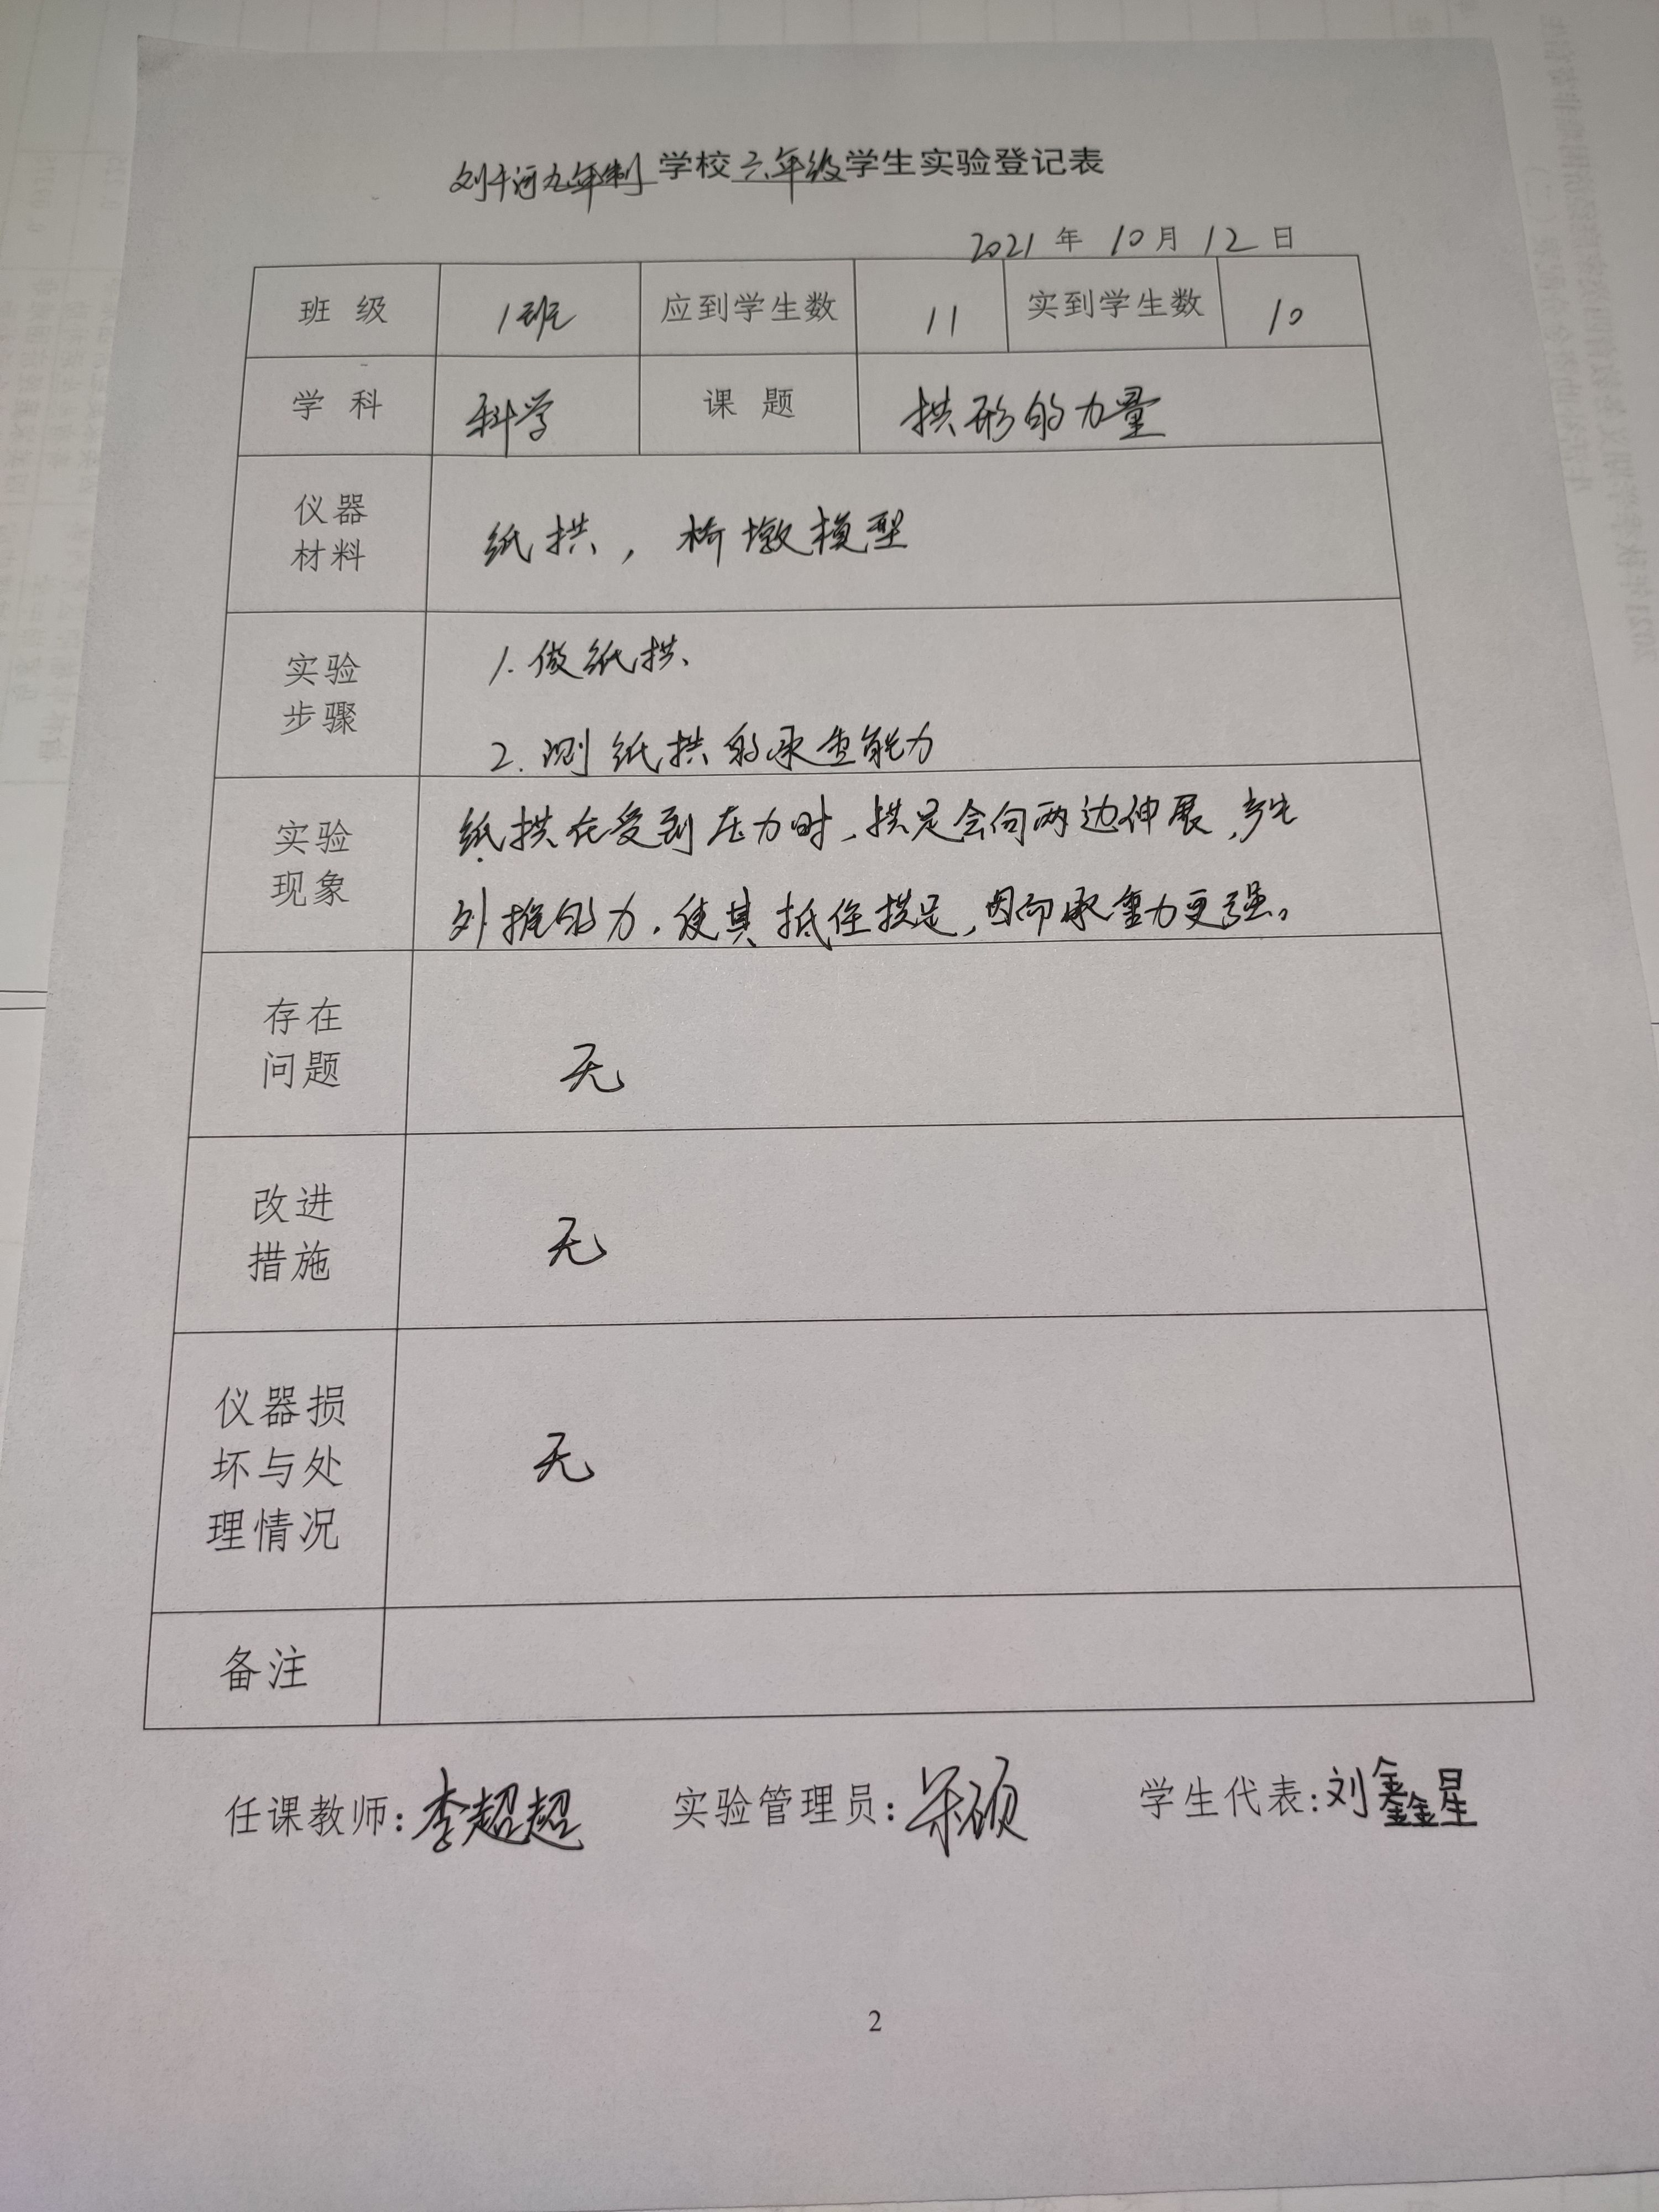 刘千河九年制学校六年级学生实验登记表
2021年10月12日
班级 1班 应到学生数 11 实到学生数 10
学科 科学 课题 拱形的力量
仪器材料 纸拱，桥墩模型
实验步骤 1.做纸拱、
2.测纸拱的承重能力
实验现象 纸拱在受到压力时，拱足会向两边伸展，产生
外推的力，使其抵住拱足，因而承重力更强。
存在问题 无
改进措施 无
仪器损坏与处理情况 无
备注
任课教师：李超超 实验管理员： 学生代表：刘鑫星
2